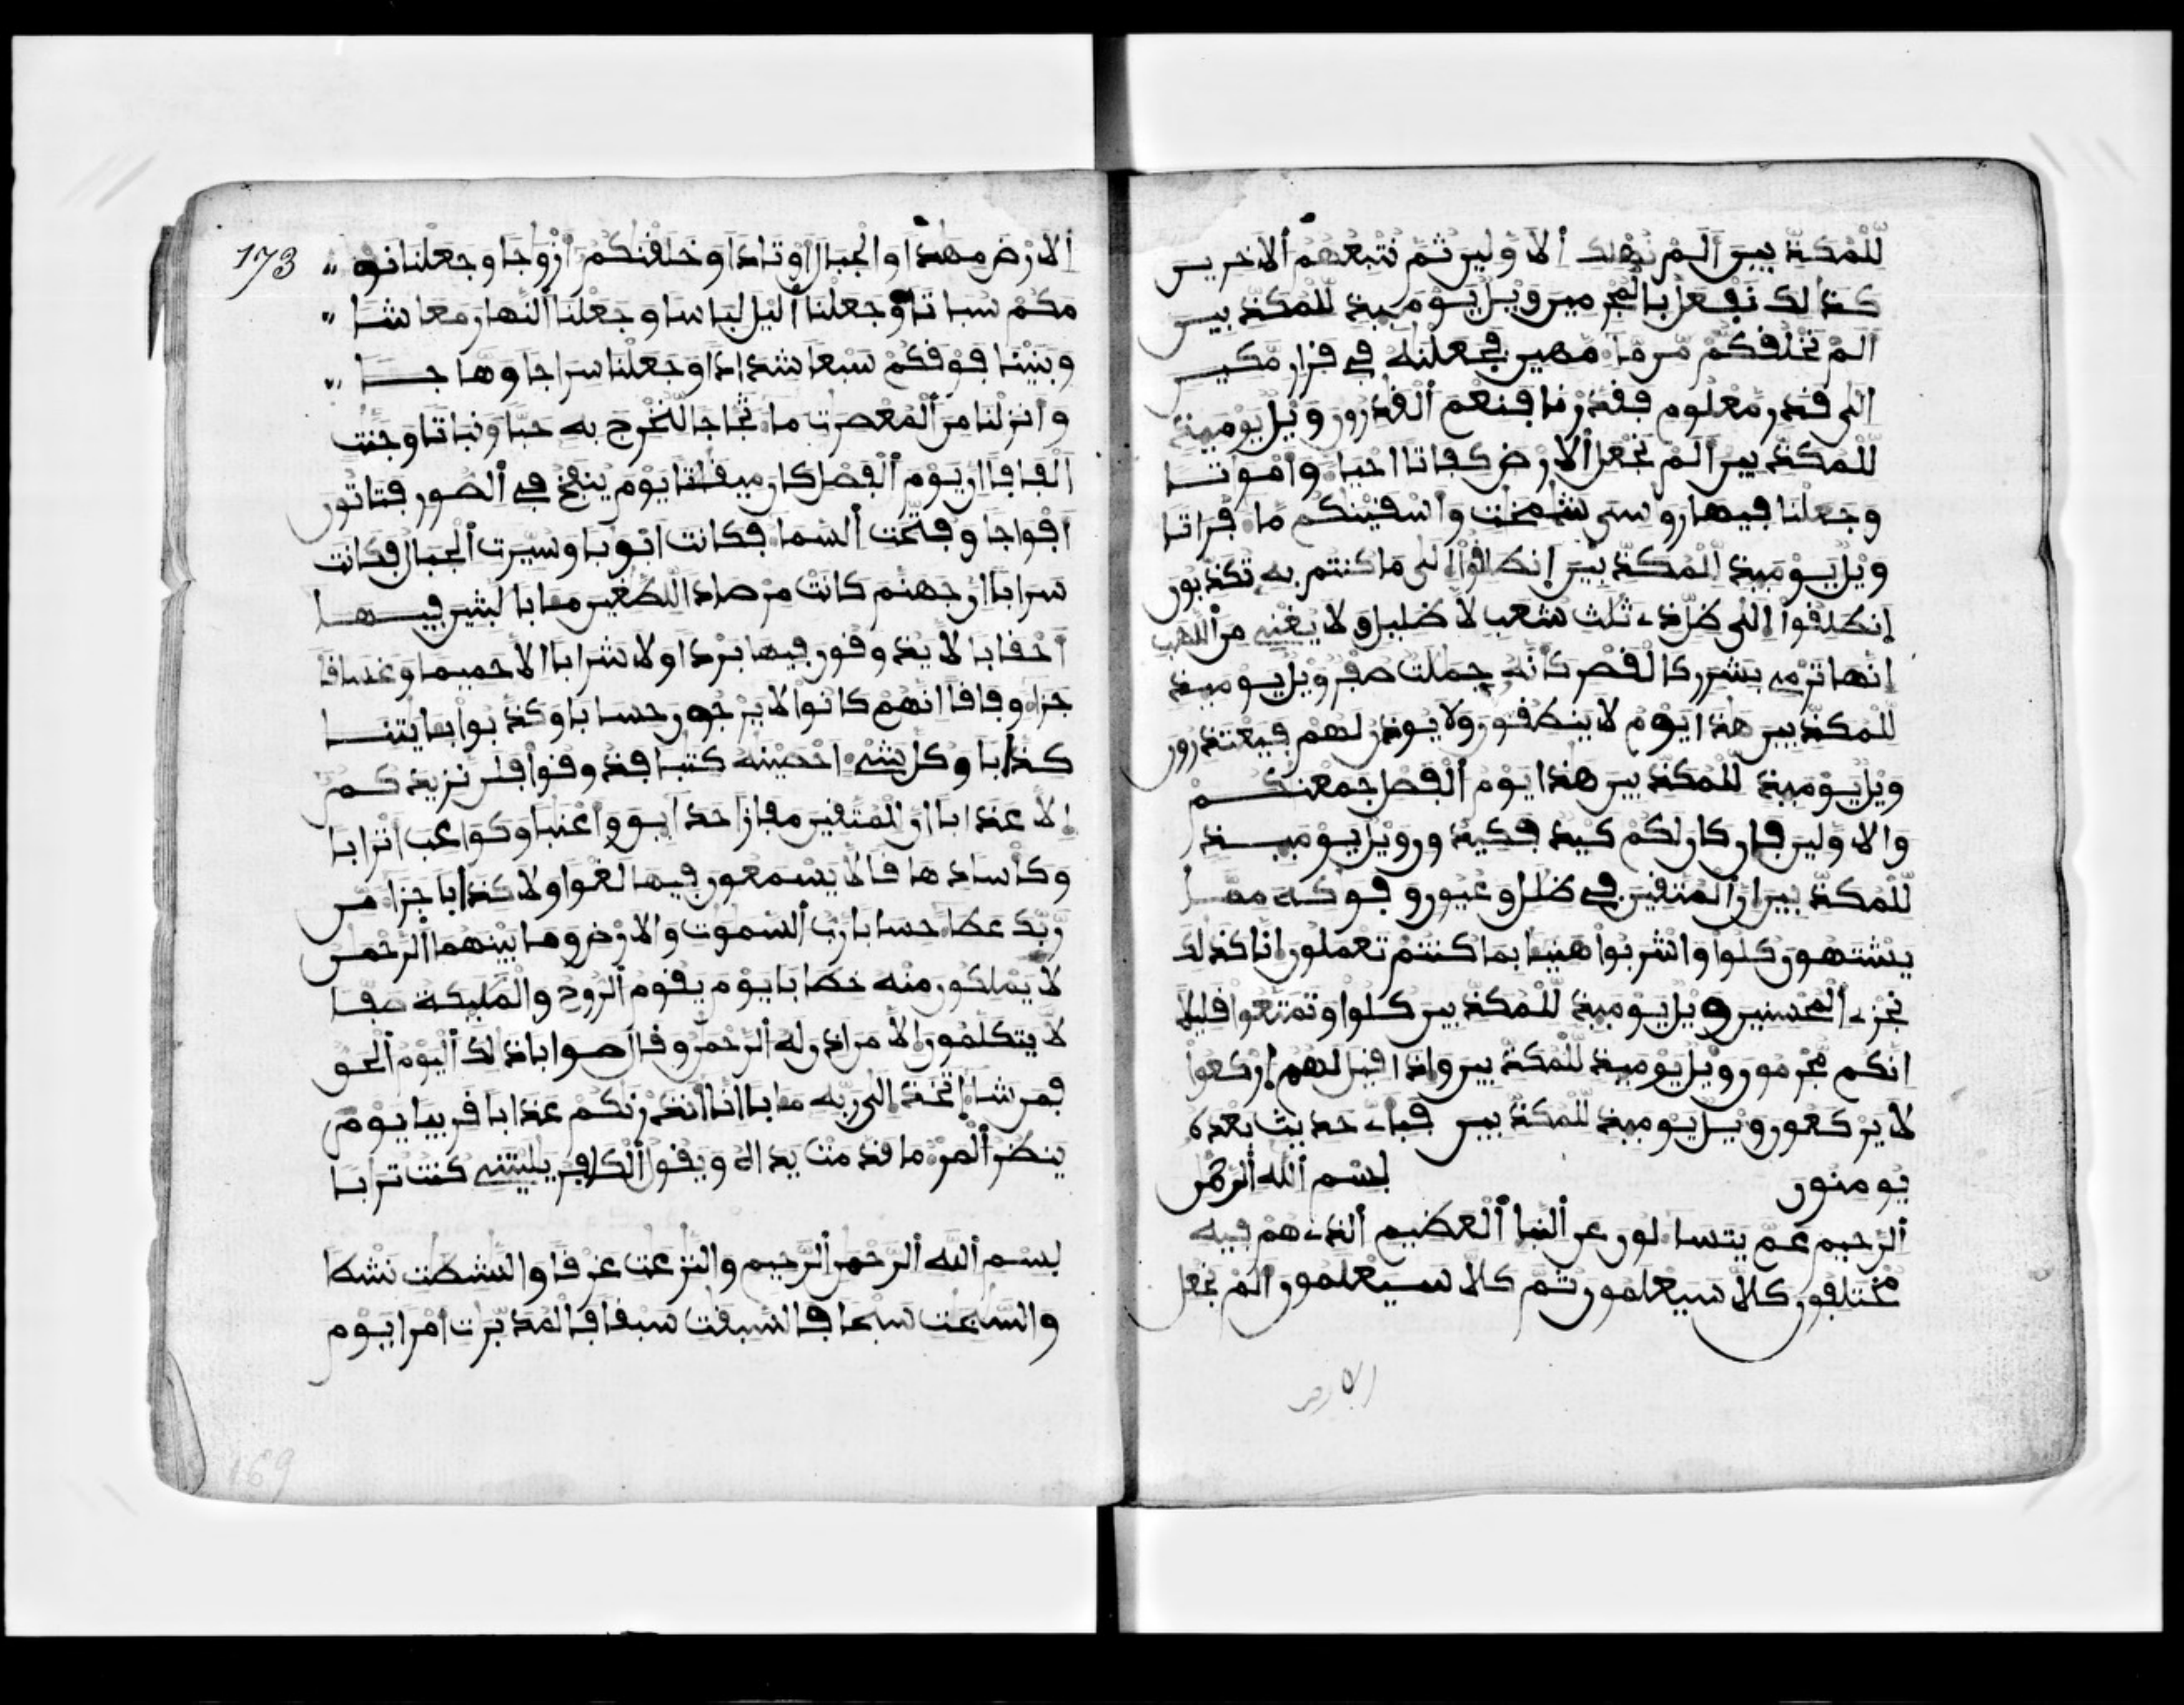 للمكذبين ألم نهلك الاولين ثم نتبعهم الاخرين
كذلك نفعل بالمجرمين ويل يومئذ للمكذبين
الم نخلقكم من ما مهين فجعلنه في قرار مكين
الى قدر معلوم فقدرنا فنعم القدرون ويل يومئذ
للمكذبين الم نجعل الارض كفاتا احيا وامواتا
وجعلنا فيها روسي شمخت واسقينكم ما فراتا
ويل يومئذ للمكذبين انطلقوا الى ما كنتم به تكذبون
انطلقوا الى ظل ذي ثلث شعب لا ظليل ولا يغني من اللهب
انها ترمي بشرر كالقصر كانه جملت صفر ويل يومئذ
للمكذبين هذا يوم لا ينطقون ولا يوذن لهم فيعتذرون
ويل يومئذ للمكذبين هذا يوم الفصل جمعنكم
والاولين فان كان لكم كيد فكيدون ويل يومئذ
للمكذبين ان المتقين في ظلل وعيون وفوكه مما
يشتهون كلوا واشربوا هنيا بما كنتم تعملون انا كذلك
نجزي المحسنين ويل يومئذ للمكذبين كلوا وتمتعوا قليلا
انكم مجرمون ويل يومئذ للمكذبين واذا قيل لهم اركعوا
لا يركعون ويل يومئذ للمكذبين فباي حديث بعده
يومنون بسم الله الرحمن
الرحيم عم يتسالون عن النبا العظيم الذي هم فيه
مختلفون كلا سيعلمون ثم كلا سيعلمون الم نجعل
الارض
173
الارض مهدا والجبال اوتادا وخلقنكم ازوجا وجعلنا نو
مكم سباتا وجعلنا اليل لباسا وجعلنا النهار معاشا
وبنينا فوقكم سبعا شدادا وجعلنا سراجا وهاجا
وانزلنا من المعصرت ما ثجاجا لنخرج به حبا ونباتا وجنت
الفافا ان يوم الفصل كان ميقتا يوم ينفخ في الصور فتاتون
افواجا وفتحت السما فكانت ابوبا وسيرت الجبال فكانت
سرابا ان جهنم كانت مرصادا للطغين مابا لبثين فيها
احقابا لا يذوقون فيها بردا ولا شرابا الا حميما وغساقا
جزا وفاقا انهم كانوا لا يرجون حسابا وكذبوا بايتنا
كذابا وكل شي احصينه كتبا فذوقوا فلن نزيدكم
الا عذابا ان للمتقين مفازا حدايق واعنبا وكواعب اترابا
وكاسا دهاقا لا يسمعون فيها لغوا ولا كذابا جزا من
ربك عطا حسابا رب السموت والارض وما بينهما الرحمن
لا يملكون منه خطابا يوم يقوم الروح والمليكة صفا
لا يتكلمون الا من اذن له الرحمن وقال صوابا ذلك اليوم الحق
فمن شا اتخذ الى ربه مابا انا انذرنكم عذابا قريبا يوم
ينظر المر ما قدمت يداه ويقول الكافر يليتني كنت تربا
بسم الله الرحمن الرحيم والنزعت غرقا والنشطت نشطا
والسبحت سبحا فالسبقت سبقا فالمدبرت امرا يوم
169